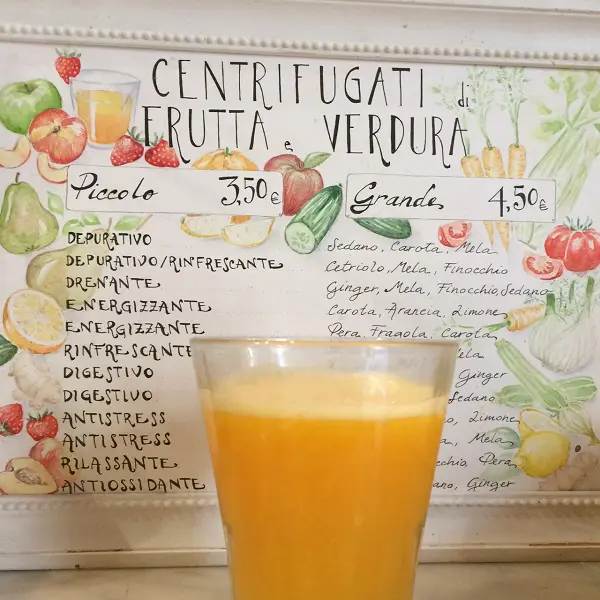 CENTRIFUGATI di
FRUTTA e VERDURA
Piccolo 3,50€ Grande 4,50€
DEPURATIVO Sedano, Carota, Mela
DEPURATIVO/RINFRESCANTE Cetriolo, Mela, Finocchio
DRENANTE Ginger, Mela, Finocchio, Sedano
ENERGIZZANTE Carota, Arancia, Limone
ENERGIZZANTE Pera, Fragola, Carota
RINFRESCANTE Mela
DIGESTIVO Ginger
DIGESTIVO Sedano
ANTISTRESS Limone
ANTISTRESS Mela
RILASSANTE Pera
ANTIOSSIDANTE Ginger